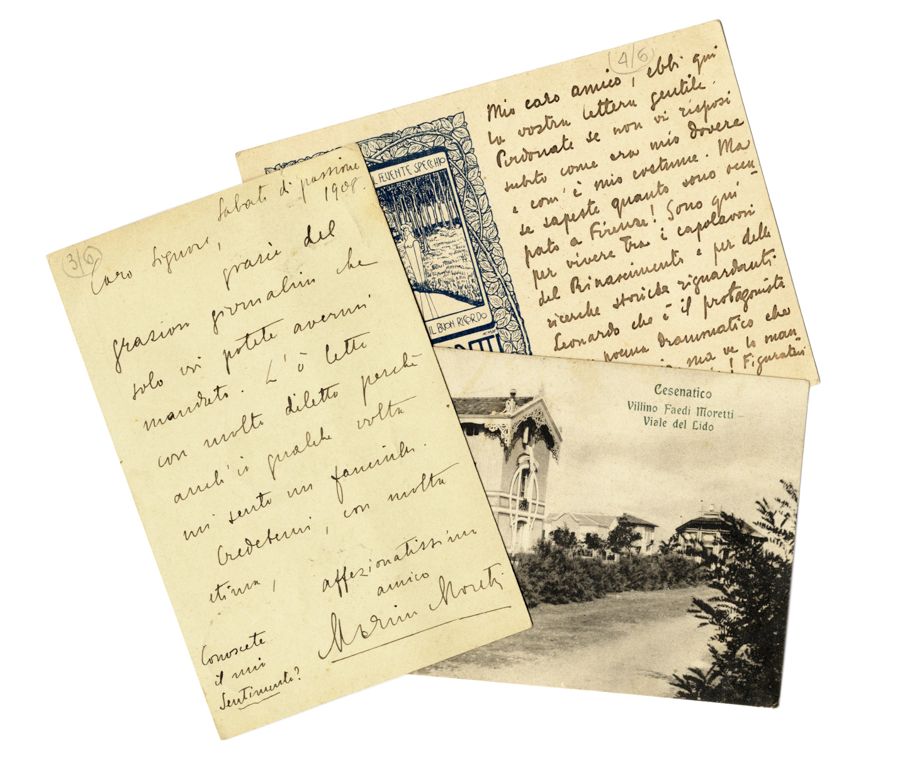 3/6
Sabato di passione
1908.
Caro Signore,
grazie del
grazioso giornalino che
solo voi potete avermi
mandato. L'ò letto
con molto diletto perché
anch'io qualche volta
mi sento un fanciullo.
Credetemi, con molta
stima, affezionatissimo
amico
Marino Moretti
Conoscete
il mio
Sentimento?
4/6
Mio caro amico, ebbi qui
la vostra lettera gentile.
Perdonate se non vi risposi
subito come era mio dovere
e com'è mio costume. Ma
se sapeste quanto sono occu-
pato a Firenze! Sono qui
per vivere tra i capolavori
del Rinascimento e per delle
ricerche storiche riguardanti
Leonardo che è il protagonista
poema drammatico che
ma ve lo man
! Figuratevi
LUENTE SPECCHIO
IL BUON RICORDO
Cesenatico
Villino Faedi Moretti -
Viale del Lido